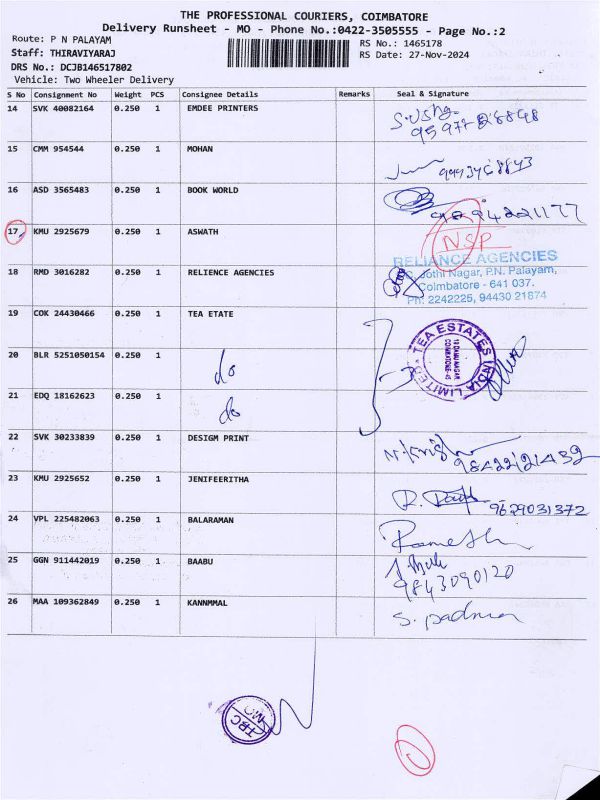 THE PROFESSIONAL COURIERS, COIMBATORE
Delivery Runsheet - MO - Phone No.:0422-3505555 - Page No.:2
Route: P N PALAYAM
RS No.: 1465178
Staff: THIRAVIYARAJ
RS Date: 27-Nov-2024
DRS No.: DCJB146517802
Vehicle: Two Wheeler Delivery
S No Consignment No Weight PCS Consignee Details Remarks Seal & Signature
14 SVK 40082164 0.250 1 EMDEE PRINTERS
15 CMM 954544 0.250 1 MOHAN
16 ASD 3565483 0.250 1 BOOK WORLD
17 KMU 2925679 0.250 1 ASWATH
NSP
RELIANCE AGENCIES
Jothi Nagar, P.N. Palayam,
18 RMD 3016282 0.250 1 RELIENCE AGENCIES
Coimbatore - 641 037.
Ph: 2242225, 94430 21874
19 COK 24430466 0.250 1 TEA ETATE
TEA ESTATES INDIA LIMITED
20 BLR 5251050154 0.250 1 do
21 EDQ 18162623 0.250 1 do
22 SVK 30233839 0.250 1 DESIGM PRINT
9842212432
23 KMU 2925652 0.250 1 JENIFEERITHA
9629031372
24 VPL 225482063 0.250 1 BALARAMAN
Ramesh
25 GGN 911442019 0.250 1 BAABU
9843090120
26 MAA 109362849 0.250 1 KANNMMAL
S. Padma
TBC
MO